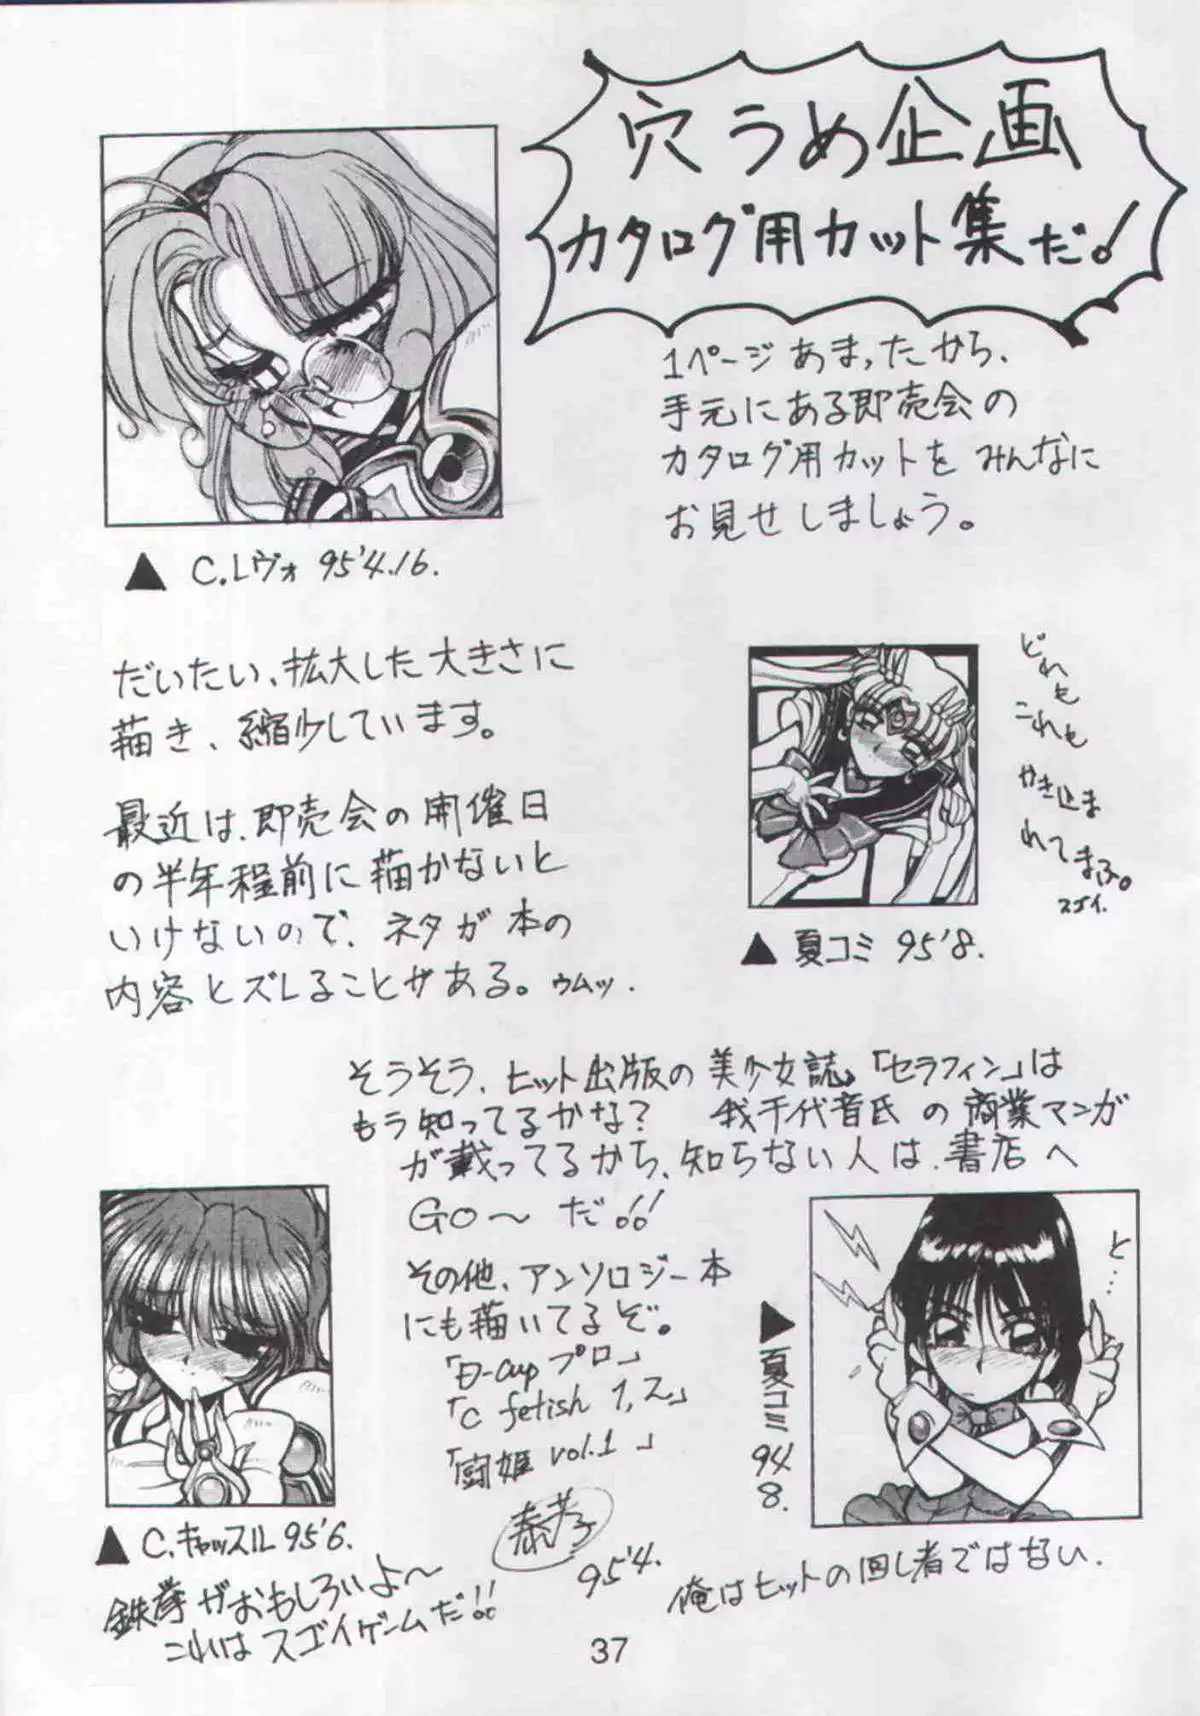 穴うめ企画
カタログ用カット集だ!
1ページあまったから、
手元にある即売会の
カタログ用カットをみんなに
お見せしましょう。
▲ C.レヴォ 95'4.16.
だいたい、拡大した大きさに
描き、縮少しています。
最近は、即売会の開催日
の半年程前に描かないと
いけないので、ネタが本の
内容とズレることがある。ゥムッ.
どれも
これも
かき込ま
れてまふ。
スゴイ.
▲ 夏コミ 95'8.
そうそう、ヒット出版の美少女誌「セラフィン」は
もう知ってるかな? 我千代音氏の商業マンガ
が載ってるから、知らない人は、書店へ
GO〜だ!!
その他、アンソロジー本
にも描いてるぞ。
「D-cupプロ」
「C fetish 1,2」
「闘姫 vol.1」
95'4.
▲ C.キャッスル 95'6.
鉄拳がおもしろいよ〜
これはスゴイゲームだ!!
と…
▲夏コミ 94 8.
俺はヒットの回し者ではない.
37